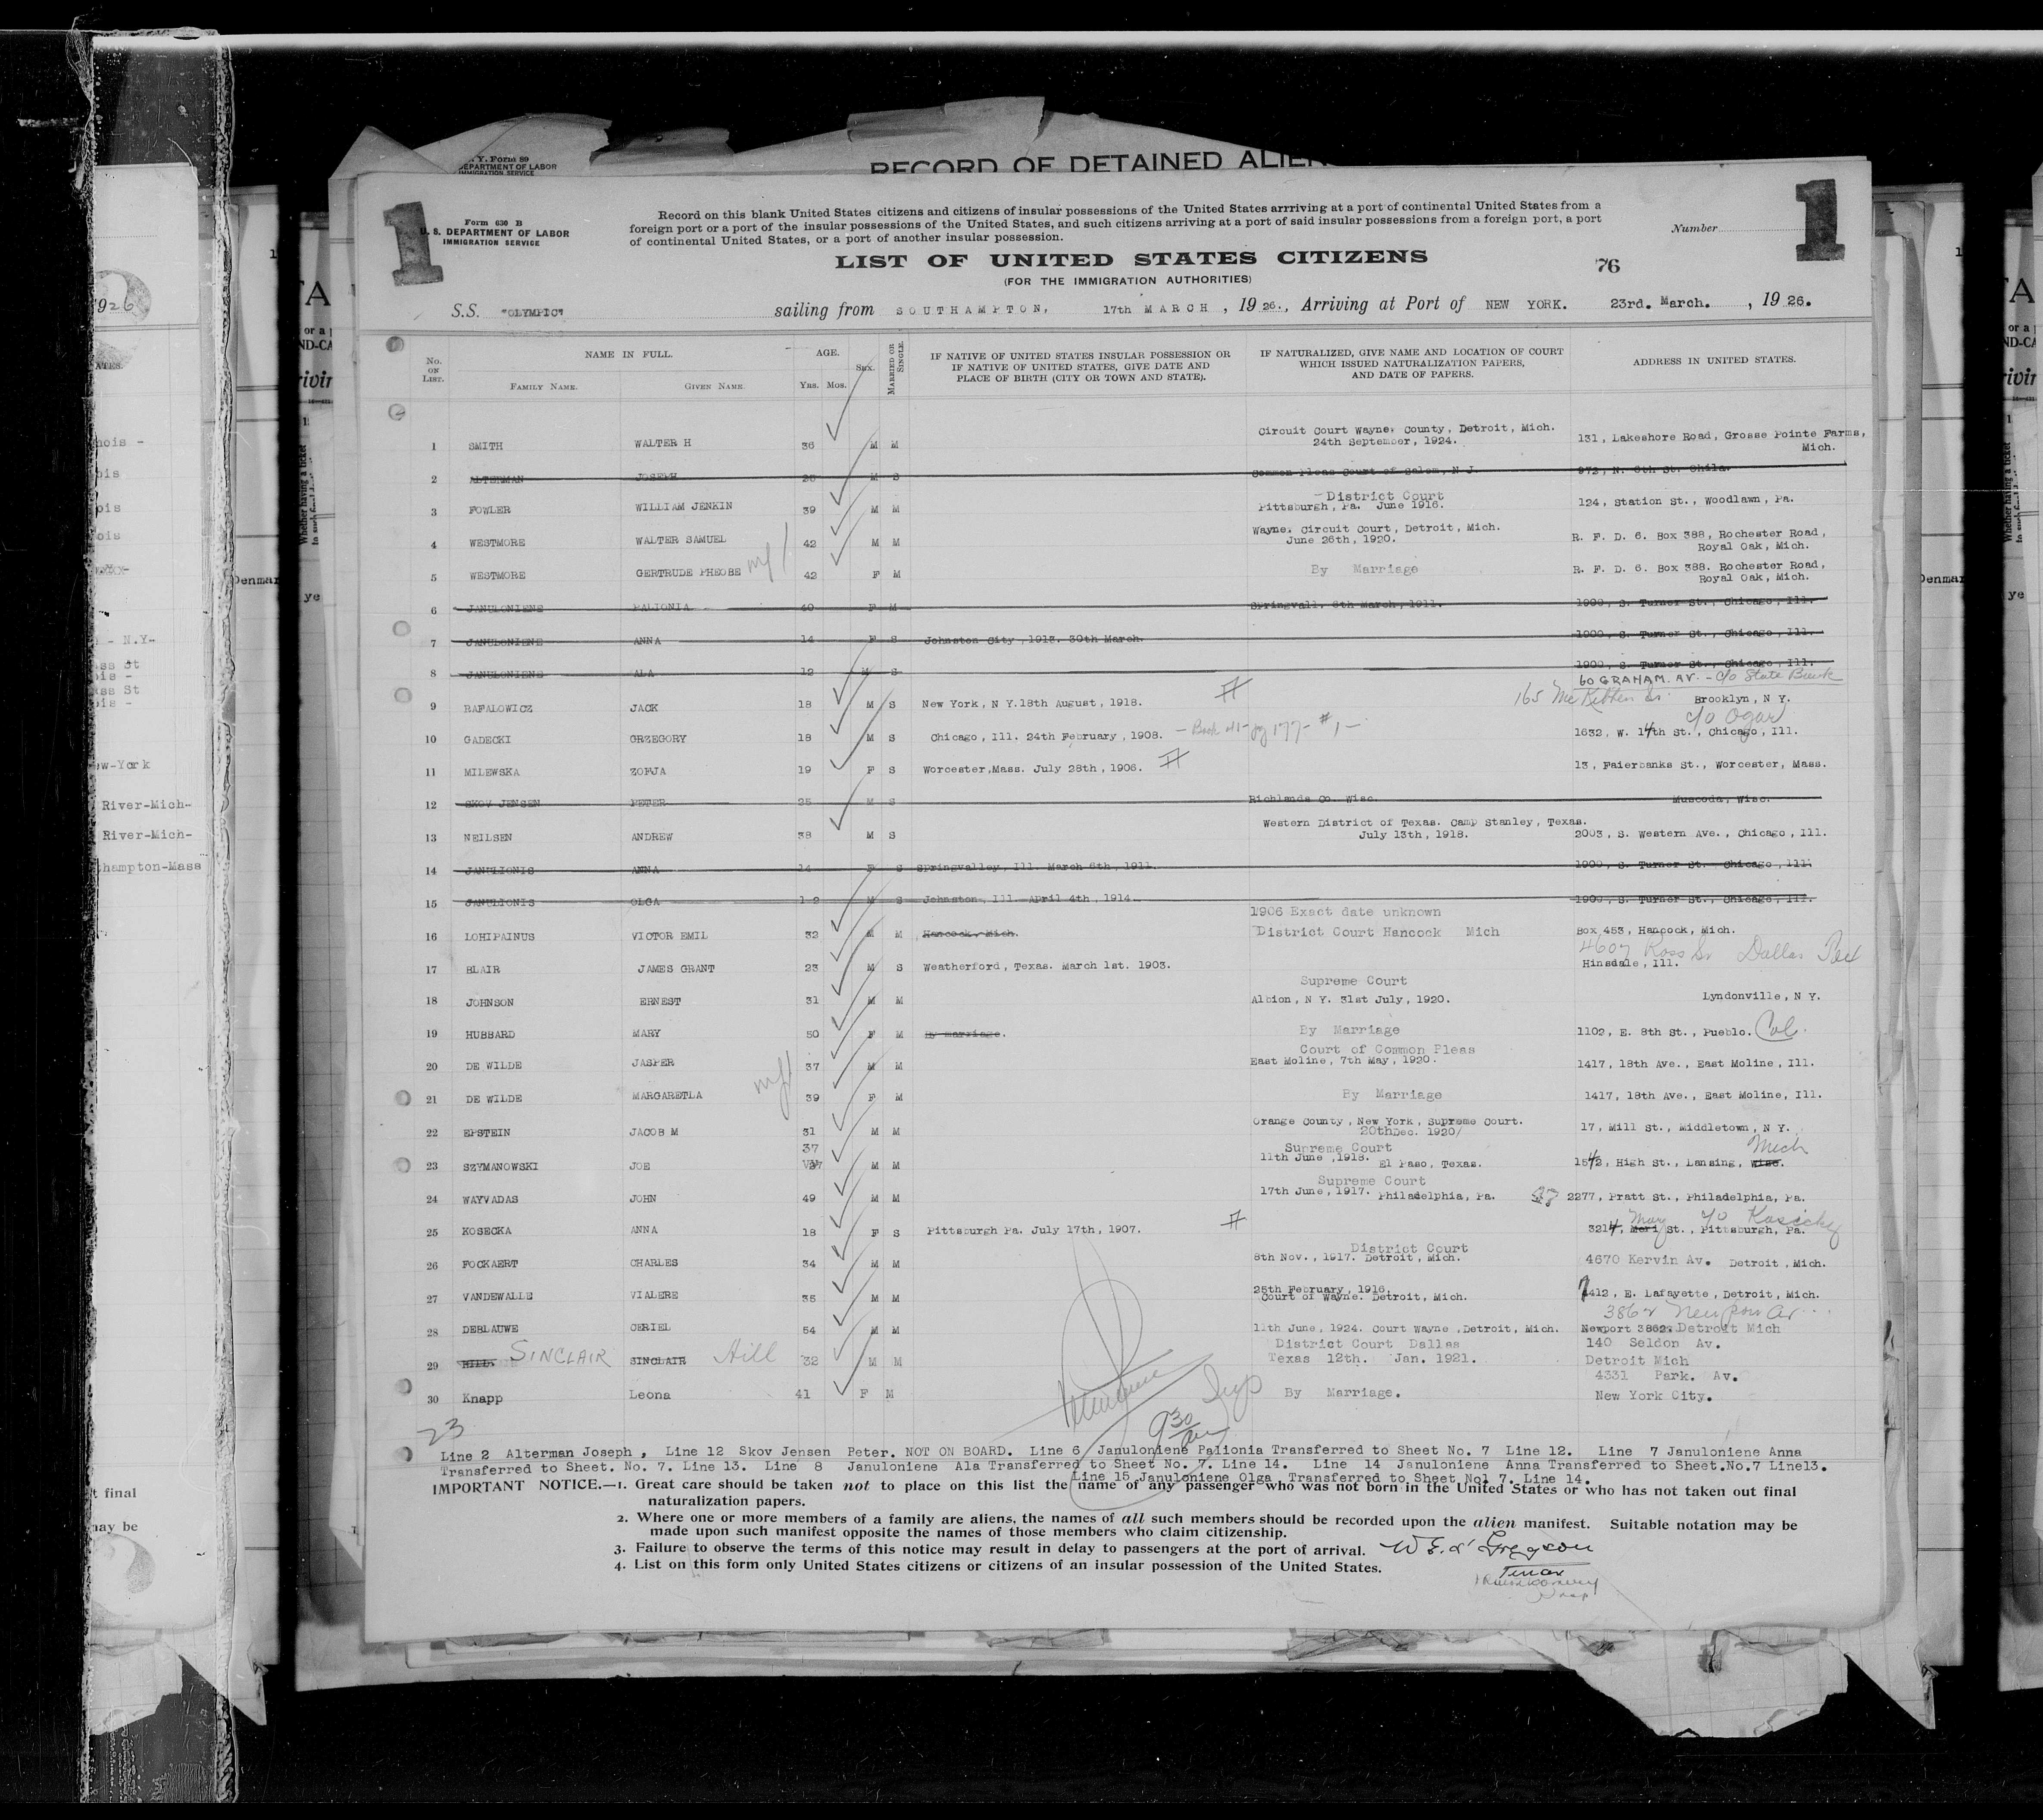 N. Y. Form 89
DEPARTMENT OF LABOR
IMMIGRATION SERVICE
RECORD OF DETAINED ALIEN
1
1
Form 630 B
U. S. DEPARTMENT OF LABOR
IMMIGRATION SERVICE
Record on this blank United States citizens and citizens of insular possessions of the United States arrriving at a port of continental United States from a
foreign port or a port of the insular possessions of the United States, and such citizens arriving at a port of said insular possessions from a foreign port, a port
of continental United States, or a port of another insular possession.
Number
LIST OF UNITED STATES CITIZENS
(FOR THE IMMIGRATION AUTHORITIES)
76
S.S. "OLYMPIC" sailing from SOUTHAMPTON, 17th MARCH, 1926., Arriving at Port of NEW YORK. 23rd. March., 1926.
No. ON LIST. NAME IN FULL. AGE. SEX. MARRIED OR SINGLE. IF NATIVE OF UNITED STATES INSULAR POSSESSION OR IF NATIVE OF UNITED STATES, GIVE DATE AND PLACE OF BIRTH (CITY OR TOWN AND STATE). IF NATURALIZED, GIVE NAME AND LOCATION OF COURT WHICH ISSUED NATURALIZATION PAPERS, AND DATE OF PAPERS. ADDRESS IN UNITED STATES.
FAMILY NAME. GIVEN NAME. Yrs. Mos.
1 SMITH WALTER H 36 M M Circuit Court Wayne. County, Detroit, Mich. 24th September, 1924. 131, Lakeshore Road, Grosse Pointe Farms, Mich.
2 ALTERMAN JOSEPH 28 M S Common Pleas Court of Salem, N J. 972, N. 6th St. Phila.
3 FOWLER WILLIAM JENKIN 39 M M District Court Pittsburgh, Pa. June 1916. 124, Station St., Woodlawn, Pa.
4 WESTMORE WALTER SAMUEL 42 M M Wayne. Circuit Court, Detroit, Mich. June 26th, 1920. R. F. D. 6. Box 388, Rochester Road, Royal Oak, Mich.
5 WESTMORE GERTRUDE PHEOBE 42 F M By Marriage R. F. D. 6. Box 388. Rochester Road, Royal Oak, Mich.
6 JANULONIENE PALIONIA 40 F M Springvall. 6th March, 1911. 1900, S. Turner St., Chicago, Ill.
7 JANULONIENE ANNA 14 F S Johnston City, 1913. 30th March. 1900, S. Turner St., Chicago, Ill.
8 JANULONIENE ALA 12 M S 1900, S. Turner St., Chicago, Ill.
60 GRAHAM. AV. - c/o State Bank
9 RAFALOWICZ JACK 18 M S New York, N Y. 18th August, 1918. 165 McKibben St. Brooklyn, N Y.
c/o Ogar
10 GADECKI GRZEGORY 18 M S Chicago, Ill. 24th February, 1908. - Book 41- pg 177- #1- 1632, W. 17th St., Chicago, Ill.
11 MILEWSKA ZOFJA 19 F S Worcester, Mass. July 28th, 1906. 13, Faierbanks St., Worcester, Mass.
12 SKOV JENSEN PETER 25 M S Richlands Co. Wisc. Muscoda, Wisc.
13 NEILSEN ANDREW 38 M S Western District of Texas. Camp Stanley, Texas. July 13th, 1918. 2003, S. Western Ave., Chicago, Ill.
14 JANULIONIS ANNA 14 F S Springvalley, Ill. March 6th, 1911. 1900, S. Turner St. Chicago, Ill.
15 JANULIONIS OLGA 12 M S Johnston, Ill. April 4th, 1914. 1900, S. Turner St., Chicago, Ill.
16 LOHIPAINUS VICTOR EMIL 32 M M Hancock. Mich. 1906 Exact date unknown District Court Hancock Mich Box 453, Hancock, Mich.
4607 Ross St Dallas Tex
17 BLAIR JAMES GRANT 23 M S Weatherford, Texas. March 1st. 1903. Hinsdale, Ill.
18 JOHNSON ERNEST 31 M M Supreme Court Albion, N Y. 31st July, 1920. Lyndonville, N Y.
19 HUBBARD MARY 50 F M By marriage. By Marriage 1102, E. 8th St., Pueblo. Col.
20 DE WILDE JASPER 37 M M Court of Common Pleas East Moline, 7th May, 1920. 1417, 18th Ave., East Moline, Ill.
21 DE WILDE MARGARETLA 39 F M By Marriage 1417, 18th Ave., East Moline, Ill.
22 EPSTEIN JACOB M 31 M M Orange County, New York, Supreme Court. 20th Dec. 1920/ 17, Mill St., Middletown, N Y.
23 SZYMANOWSKI JOE 37 M M Supreme Court 11th June, 1918. El Paso, Texas. 1542, High St., Lansing, Wisc. Mich
24 WAYVADAS JOHN 49 M M Supreme Court 17th June, 1917. Philadelphia, Pa. 2277, Pratt St., Philadelphia, Pa.
25 KOSECKA ANNA 18 F S Pittsburgh Pa. July 17th, 1907. 3214, St., Pittsburgh, Pa. c/o Kosicky
26 FOCKAERT CHARLES 34 M M District Court 8th Nov., 1917. Detroit, Mich. 4670 Kervin Av. Detroit, Mich.
27 VANDEWALLE VIALERE 35 M M 25th February, 1916. Court of Wayne. Detroit, Mich. 7412, E. Lafayette, Detroit, Mich.
28 DEBLAUWE CERIEL 54 M M 11th June, 1924. Court Wayne, Detroit, Mich. Newport 3862. Detroit Mich
29 HILL SINCLAIR SINCLAIR Hill 32 M M District Court Dallas Texas 12th. Jan. 1921. 140 Seldon Av. Detroit Mich
30 Knapp Leona 41 F M By Marriage. 4331 Park. Av. New York City.
23
9 30 AM
Line 2 Alterman Joseph, Line 12 Skov Jensen Peter. NOT ON BOARD. Line 6 Januloniene Palionia Transferred to Sheet No. 7 Line 12. Line 7 Januloniene Anna
Transferred to Sheet. No. 7. Line 13. Line 8 Januloniene Ala Transferred to Sheet No. 7. Line 14. Line 14 Januloniene Anna Transferred to Sheet.No.7 Line13.
Line 15 Januloniene Olga Transferred to Sheet No1 7. Line 14.
IMPORTANT NOTICE.—1. Great care should be taken not to place on this list the name of any passenger who was not born in the United States or who has not taken out final
naturalization papers.
2. Where one or more members of a family are aliens, the names of all such members should be recorded upon the alien manifest. Suitable notation may be
made upon such manifest opposite the names of those members who claim citizenship.
3. Failure to observe the terms of this notice may result in delay to passengers at the port of arrival.
4. List on this form only United States citizens or citizens of an insular possession of the United States.